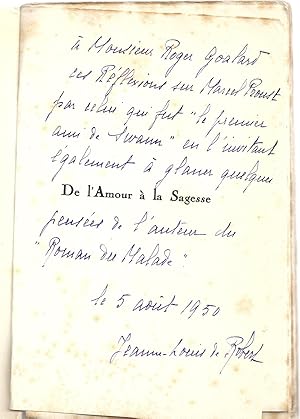 à Monsieur Roger Goalard
ces Réflexions sur Marcel Proust
par celui qui fut "le premier
ami de Swann" en l'invitant
également à glaner quelques
De l'Amour à la Sagesse
pensées de l'auteur du
"Roman du Malade".
le 5 août 1950
Jeanne-Louis de Robert